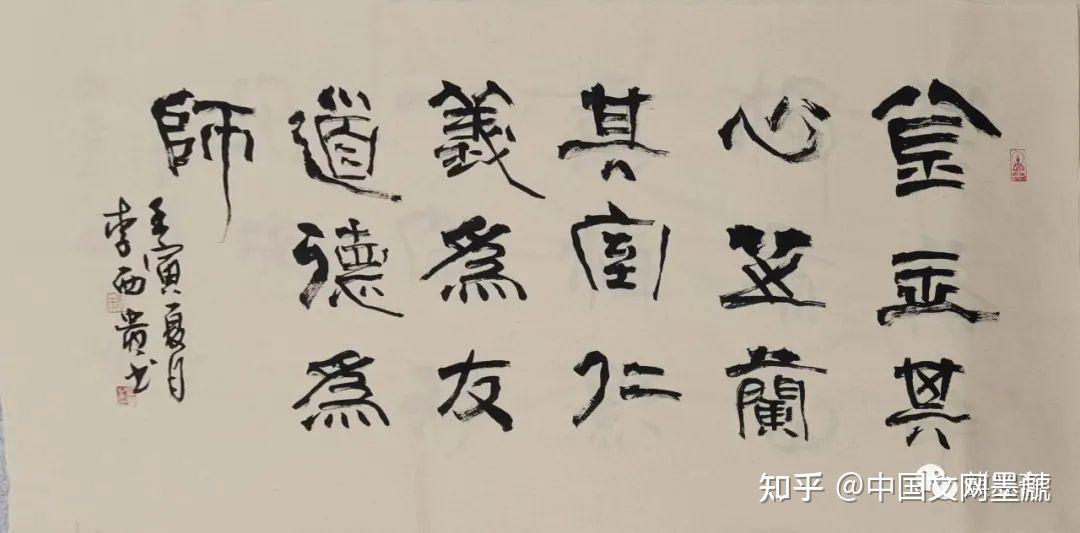 金玉其
心芝蘭
其室仁
義爲友
道德爲
師
壬寅夏月
李西貴书
知乎 @中国文网墨